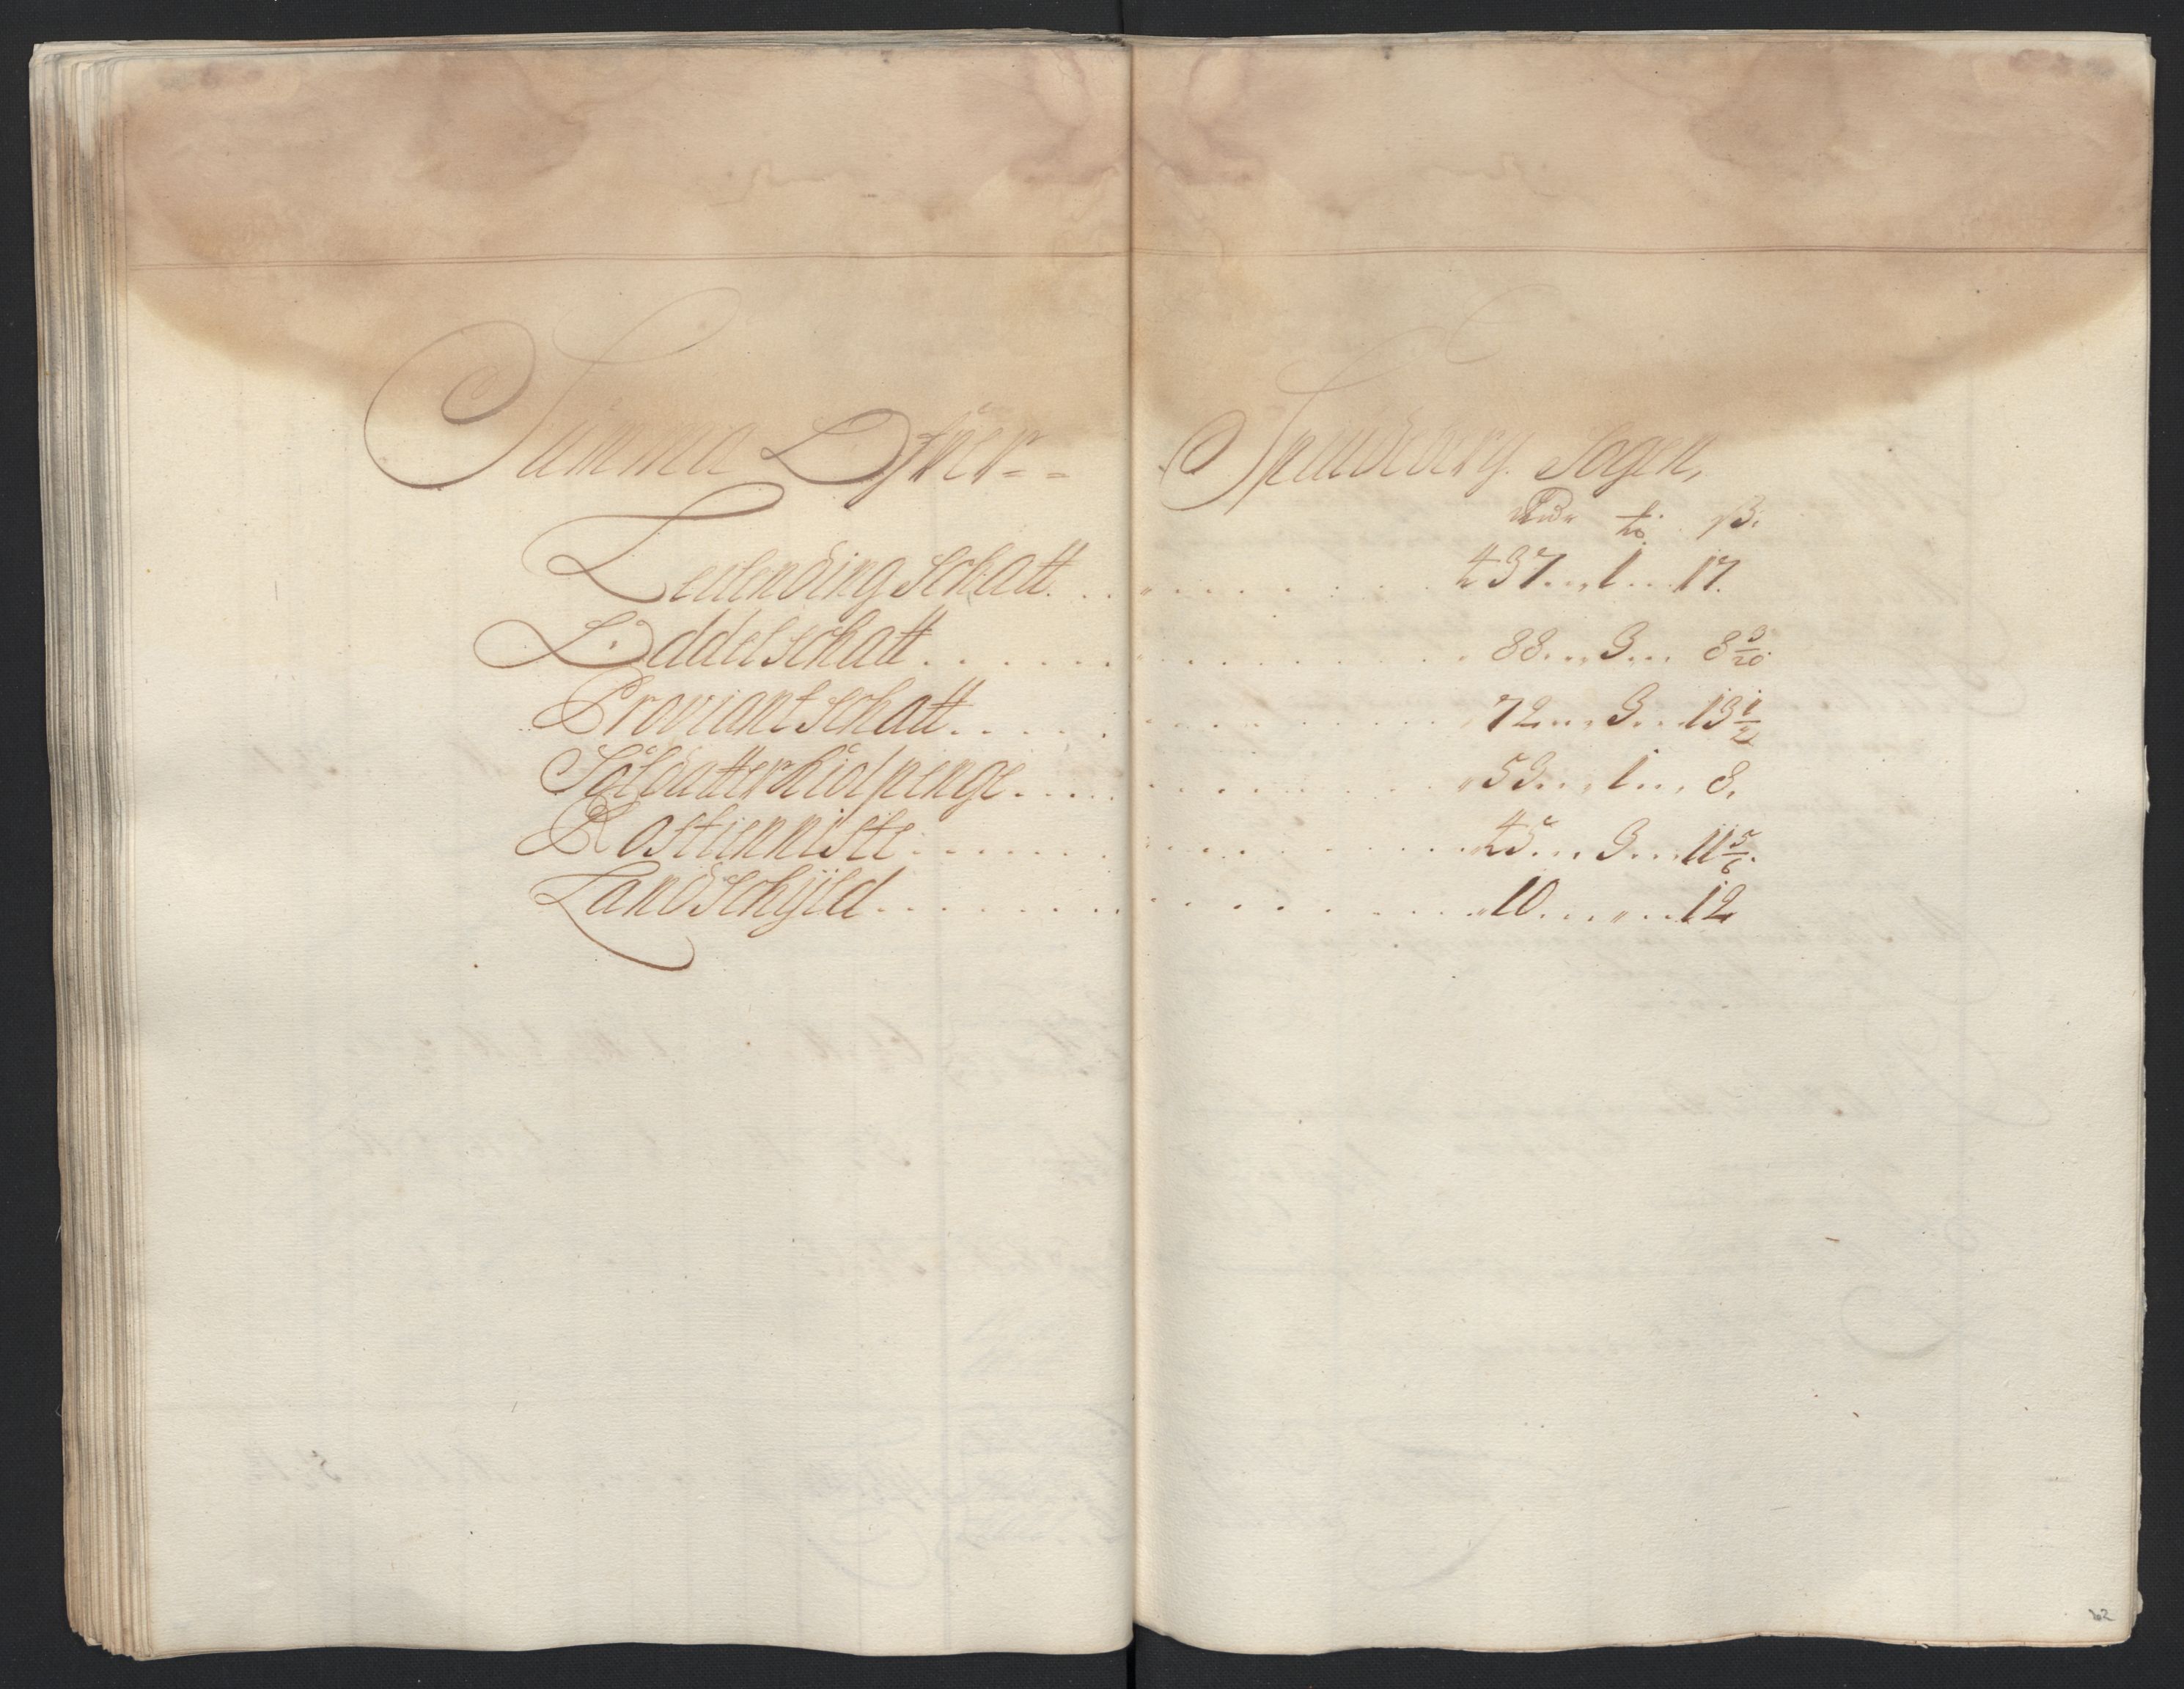 Summa Ofver== Spendeberg Sogen,
Rdr ß.
Leilending Schatt . . . 437 . . . 1 . . . 17.
Oddel Schatt . . . 88 . . . 3 . . . 8 3/20
Proviant Schatt . . . 72 . . . 3 . . . 13 1/2
Soldatterhiolpenge . . . 53 . . . 1 . . . 8.
Rostienniste . . . 45 . . . 3 . . . 11 5/6.
Landschÿld . . . 10 . . . „ . . . 12
62